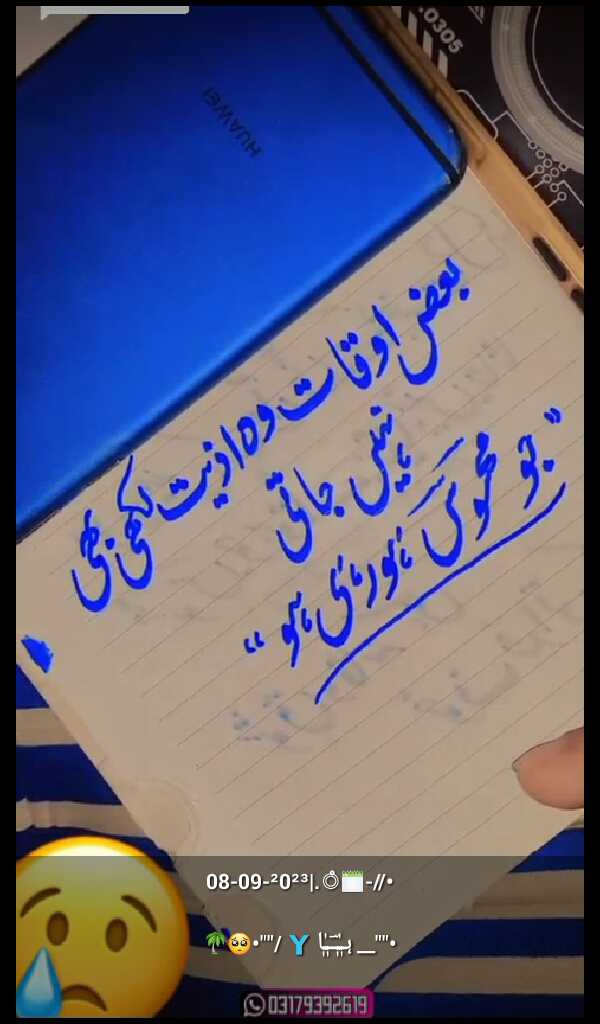 .0305
HUAWEI
بعض اوقات وہ اذیت لکھی بھی
نہیں جاتی
"جو محسوس ہو رہی ہو"
08-09-²0²³|.💍🗒️-//•
🌴🥺•""/ Y __""•
03179392619